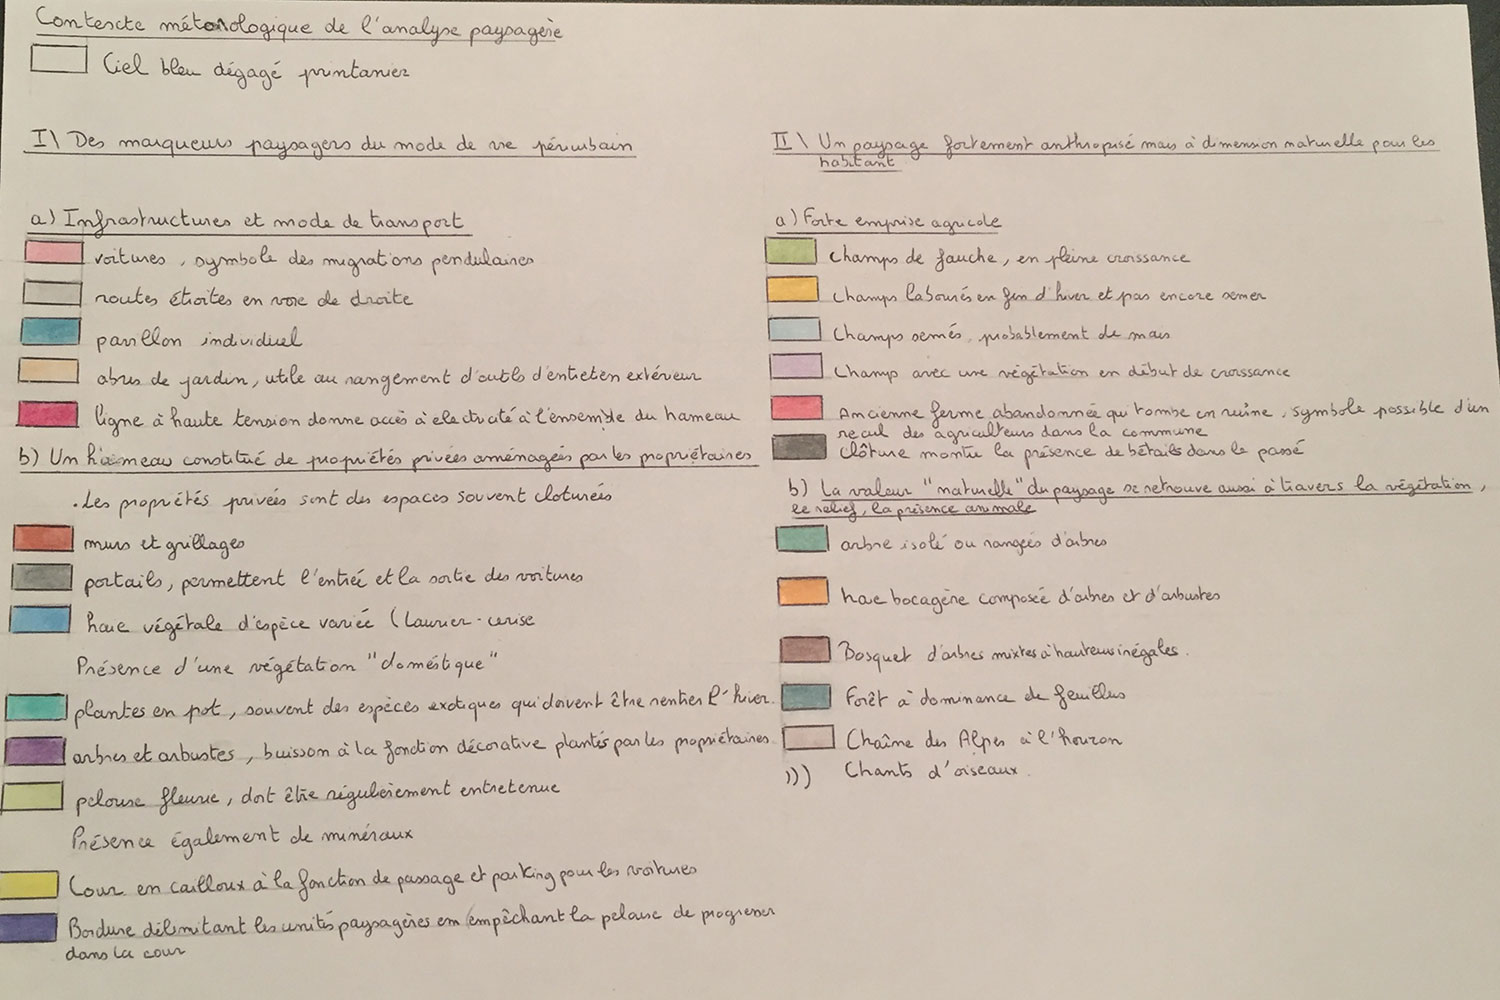 Contexte météorologique de l'analyse paysagère
Ciel bleu dégagé printanier
I\ Des marqueurs paysagers du mode de vie périurbain
a) Infrastructures et mode de transport
voitures, symbole des migrations pendulaires
routes étroites en voie de droite
pavillon individuel
abris de jardin, utile au rangement d'outils d'entretien extérieur
ligne à haute tension donne accès à electricité à l'ensemble du hameau
b) Un hameau constitué de propriétés privées aménagées par les propriétaires
. Les propriétés privées sont des espaces souvent cloturées
murs et grillages
portails, permettent l'entrée et la sortie des voitures
haie végétale d'espèce variée (Laurier-cerise
Présence d'une végétation "domestique"
plantes en pot, souvent des espèces exotiques qui doivent être rentrer l'hiver.
arbres et arbustes, buisson à la fonction décorative plantés par les propriétaires
pelouse fleurie, doit être régulièrement entretenue
Présence également de minéraux
Cour en cailloux à la fonction de passage et parking pour les voitures
Bordure délimitant les unités paysagères en empêchant la pelouse de progresser
dans la cour
II\ Un paysage fortement anthropisé mais à dimension naturelle pour les
habitant
a) Forte emprise agricole
Champs de fauche, en pleine croissance
Champs labourés en fin d'hiver et pas encore semer
Champs semés, probablement de mais
Champ avec une végétation en début de croissance
Ancienne ferme abandonnée qui tombe en ruine, symbole possible d'un
recul des agriculteurs dans la commune
clôture montre la présence de bétails dans le passé
b) La valeur "naturelle" du paysage se retrouve aussi à travers la végétation,
le relief, la présence animale
arbre isolé ou rangées d'arbres
haie bocagère composée d'arbres et d'arbustes
Bosquet d'arbres mixtes à hauteurs inégales.
Forêt à dominance de feuillus
Chaîne des Alpes à l'horizon
))) Chants d'oiseaux.